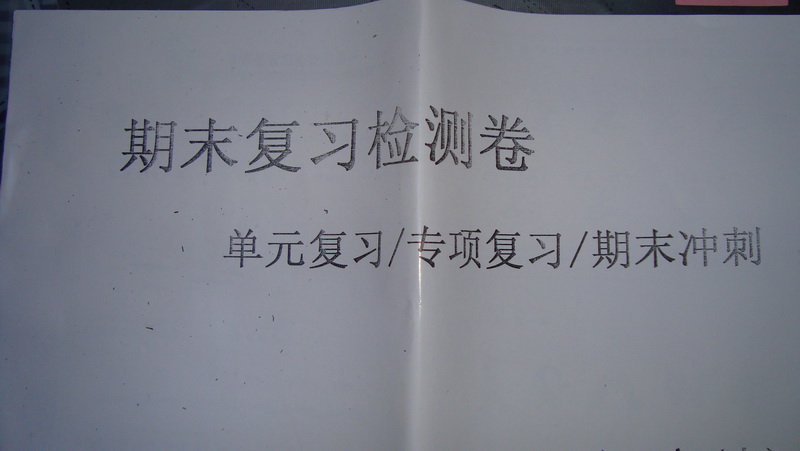 期末复习检测卷
单元复习/专项复习/期末冲刺